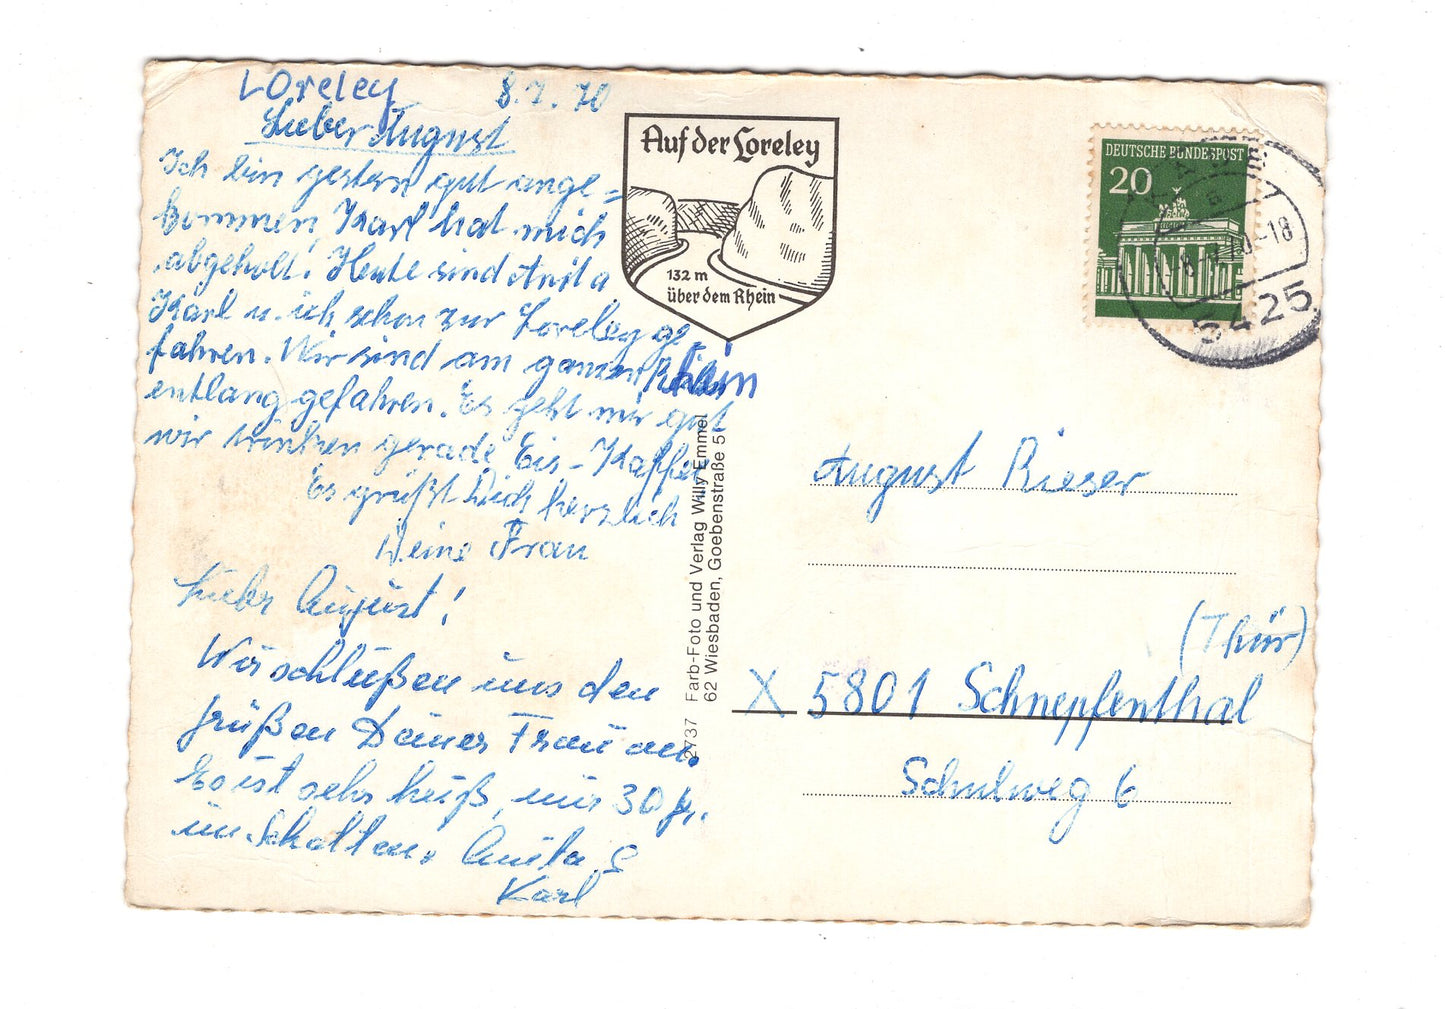 Loreley 8.7.70
Lieber August
Ich bin gestern gut ange=
kommen, Karl hat mich
abgeholt. Heute sind Anita
Karl u. ich schon zur Loreley ge-
fahren. Wir sind am ganzen Rhein
entlang gefahren. Es geht mir gut
wir trinken gerade Eis-Kaffee
Es grüßt Dich herzlich
Deine Frau
Lieber August!
Wir schließen uns den
Grüßen Deiner Frau an.
Es ist sehr heiß, nur 30 gr.
im Schatten. Anita &
Karl
Auf der Loreley
132 m
über dem Rhein
2737 Farb-Foto und Verlag Willy Emmel
62 Wiesbaden, Goebenstraße 5
DEUTSCHE BUNDESPOST
20
-18
5425
August Rieser
(Thür)
X 5801 Schnepfenthal
Schulweg 6